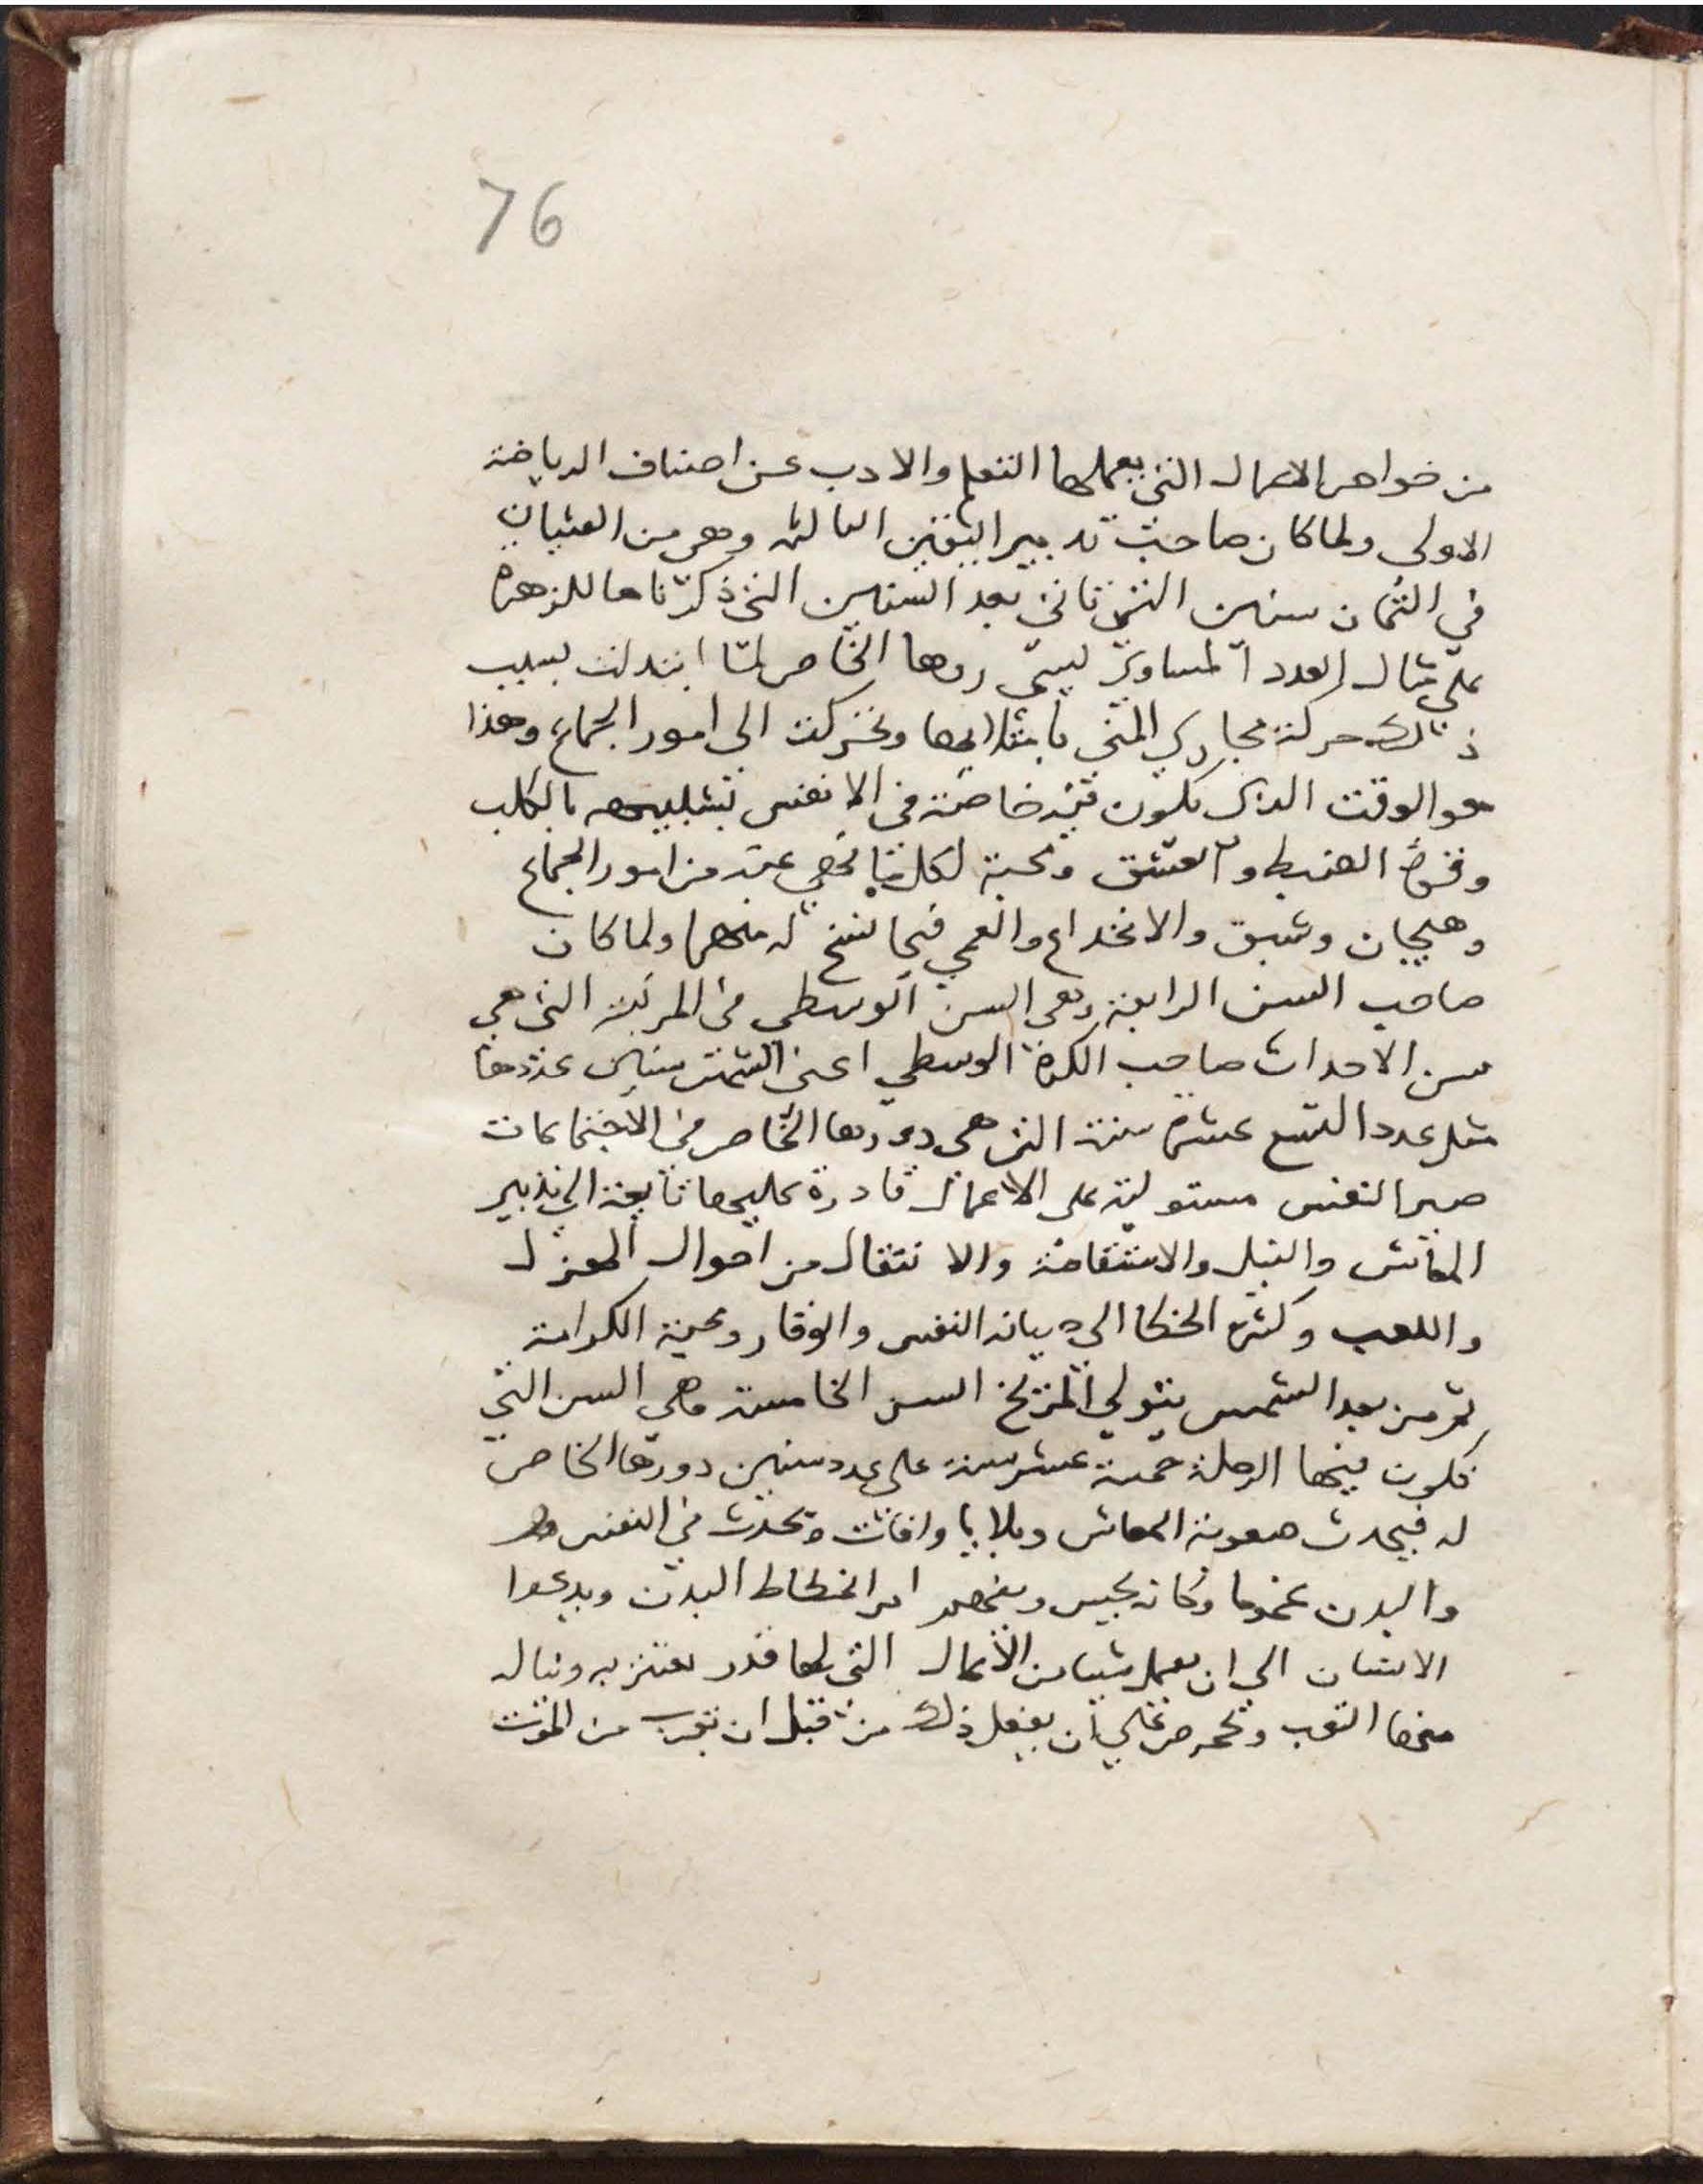 76
من خواص الاعمال التي يعملها التعلم والادب عن اصناف الرياضة
الاولى ولما كان صاحب تدبير السن الثالثه وهو من الفتيان
في الثمان سنين التي تاتي بعد السنين التي ذكرناها للزهرة
على مثال العدد المساوي لسني دورها الخاص لما ابتدات بسبب
ذلك حركة مجاري المني بامتلايها وتحركت الى امور الجماع وهذا
هو الوقت الذي يكون فيه خاصة في الانفس تشبيه بالكلب
وفرط الضبط والعشق ومحبة لكل ما نحى عنه من امور الجماع
وهيجان وشبق والانخداع والعمي فيما لسنح له منها ولما كان
صاحب السن الرابعة وهى السن الوسطى في المرتبة التي هي
سن الاحداث صاحب الكرة الوسطي اعني الشمس سنين عددها
مثل عدد التسع عشرة سنة التي هى دورها الخاص في الاجتماعات
صير النفس مستولية على الاعمال قادرة عليها تابعة الي تدبير
المعاش والنبل والاستقامة والانتقال من احوال الهزل
واللعب وكثرة الخطا الي صيانه النفس والوقار ومحبة الكرامة
ثم من بعد الشمس يتولي المريخ السن الخامسة وهي السن التي
تكون فيها الرجلة خمسة عشر سنة على عدد سنين دورها الخاص
له فيحدث صعوبة المعاش وبلايا وافات وتحدث في النفس
والبدن غموما وكانه يحس ويفهم امر انحطاط البدن ويدعوا
الانسان الي ان يعمل شيا من الاعمال التي لها قدر يعتز به وناله
منها التعب ويحرص علي ان يفعل ذلك من قبل ان يقرب من الموت